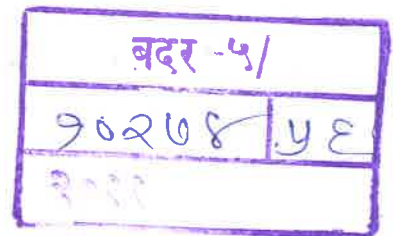 बदर -५/
१०२७४ ५६
२०११